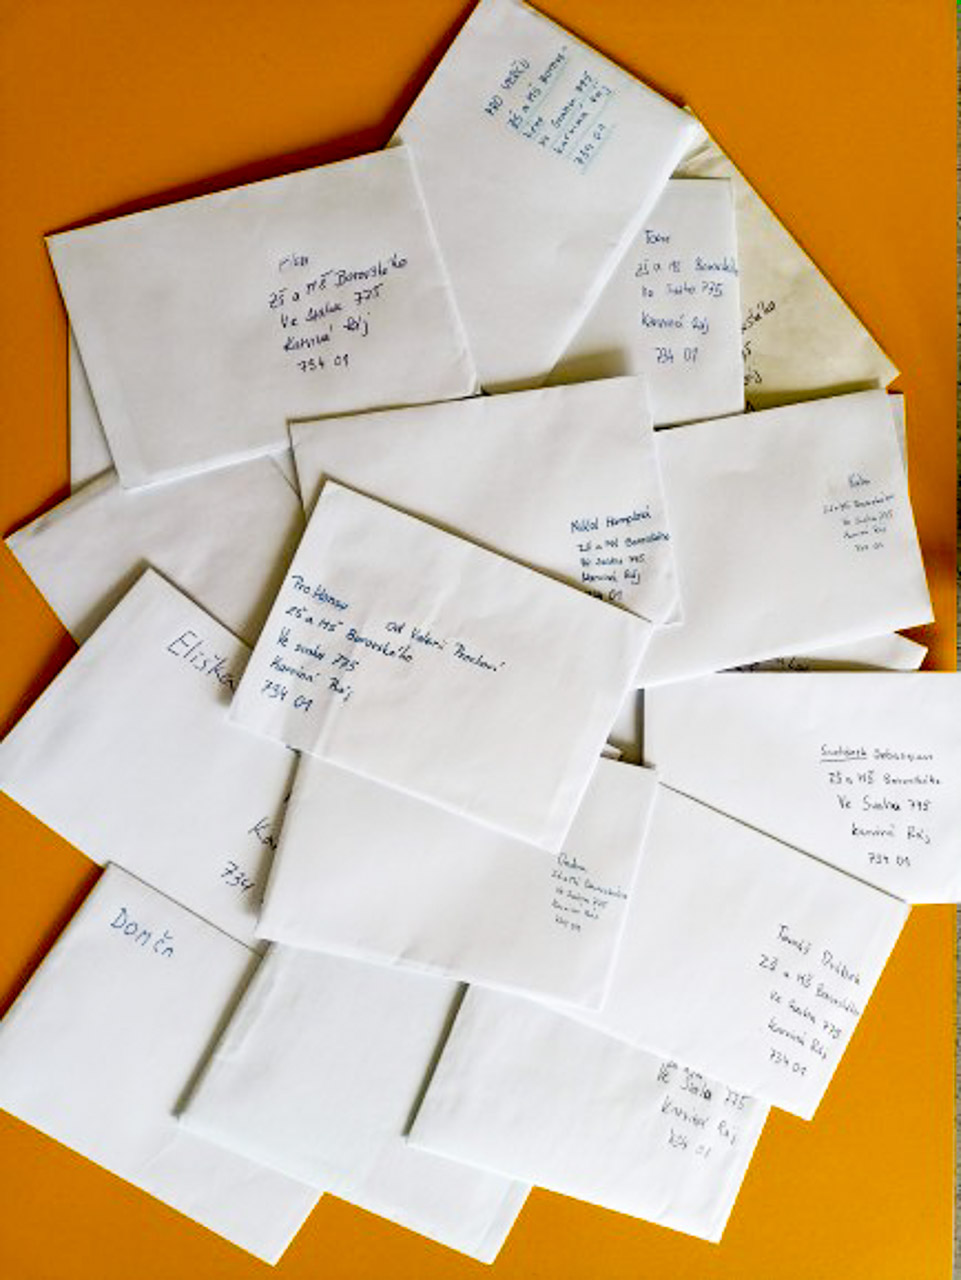 PRO VERČU
ZŠ a MŠ Borovs-
kého
Ve Svahu 775
Karviná Ráj
734 01
ZŠ a MŠ Borovského
Ve Svahu 775
Karviná Ráj
734 01
Tom
ZŠ a MŠ Borovského
Ve Svahu 775
Karviná Ráj
734 01
ZŠ a MŠ Borovského
Ve Svahu 775
Karviná Ráj
734 01
ZŠ a MŠ Borovského
Ve Svahu 775
Karviná Ráj
734 01
Pro Hansu
od Valerie
ZŠ a MŠ Borovského
Ve svahu 775
Karviná Ráj
734 01
Eliška
Ka
734
Sebastian
ZŠ a MŠ Borovského
Ve Svahu 775
Karviná Ráj
734 01
Ondra
ZŠ a MŠ Borovského
Ve Svahu 775
Karviná Ráj
734 01
Domčn
Tomáš
ZŠ a MŠ Borovského
Ve Svahu 775
Karviná Ráj
734 01
Ve Svahu 775
Karviná Ráj
734 01